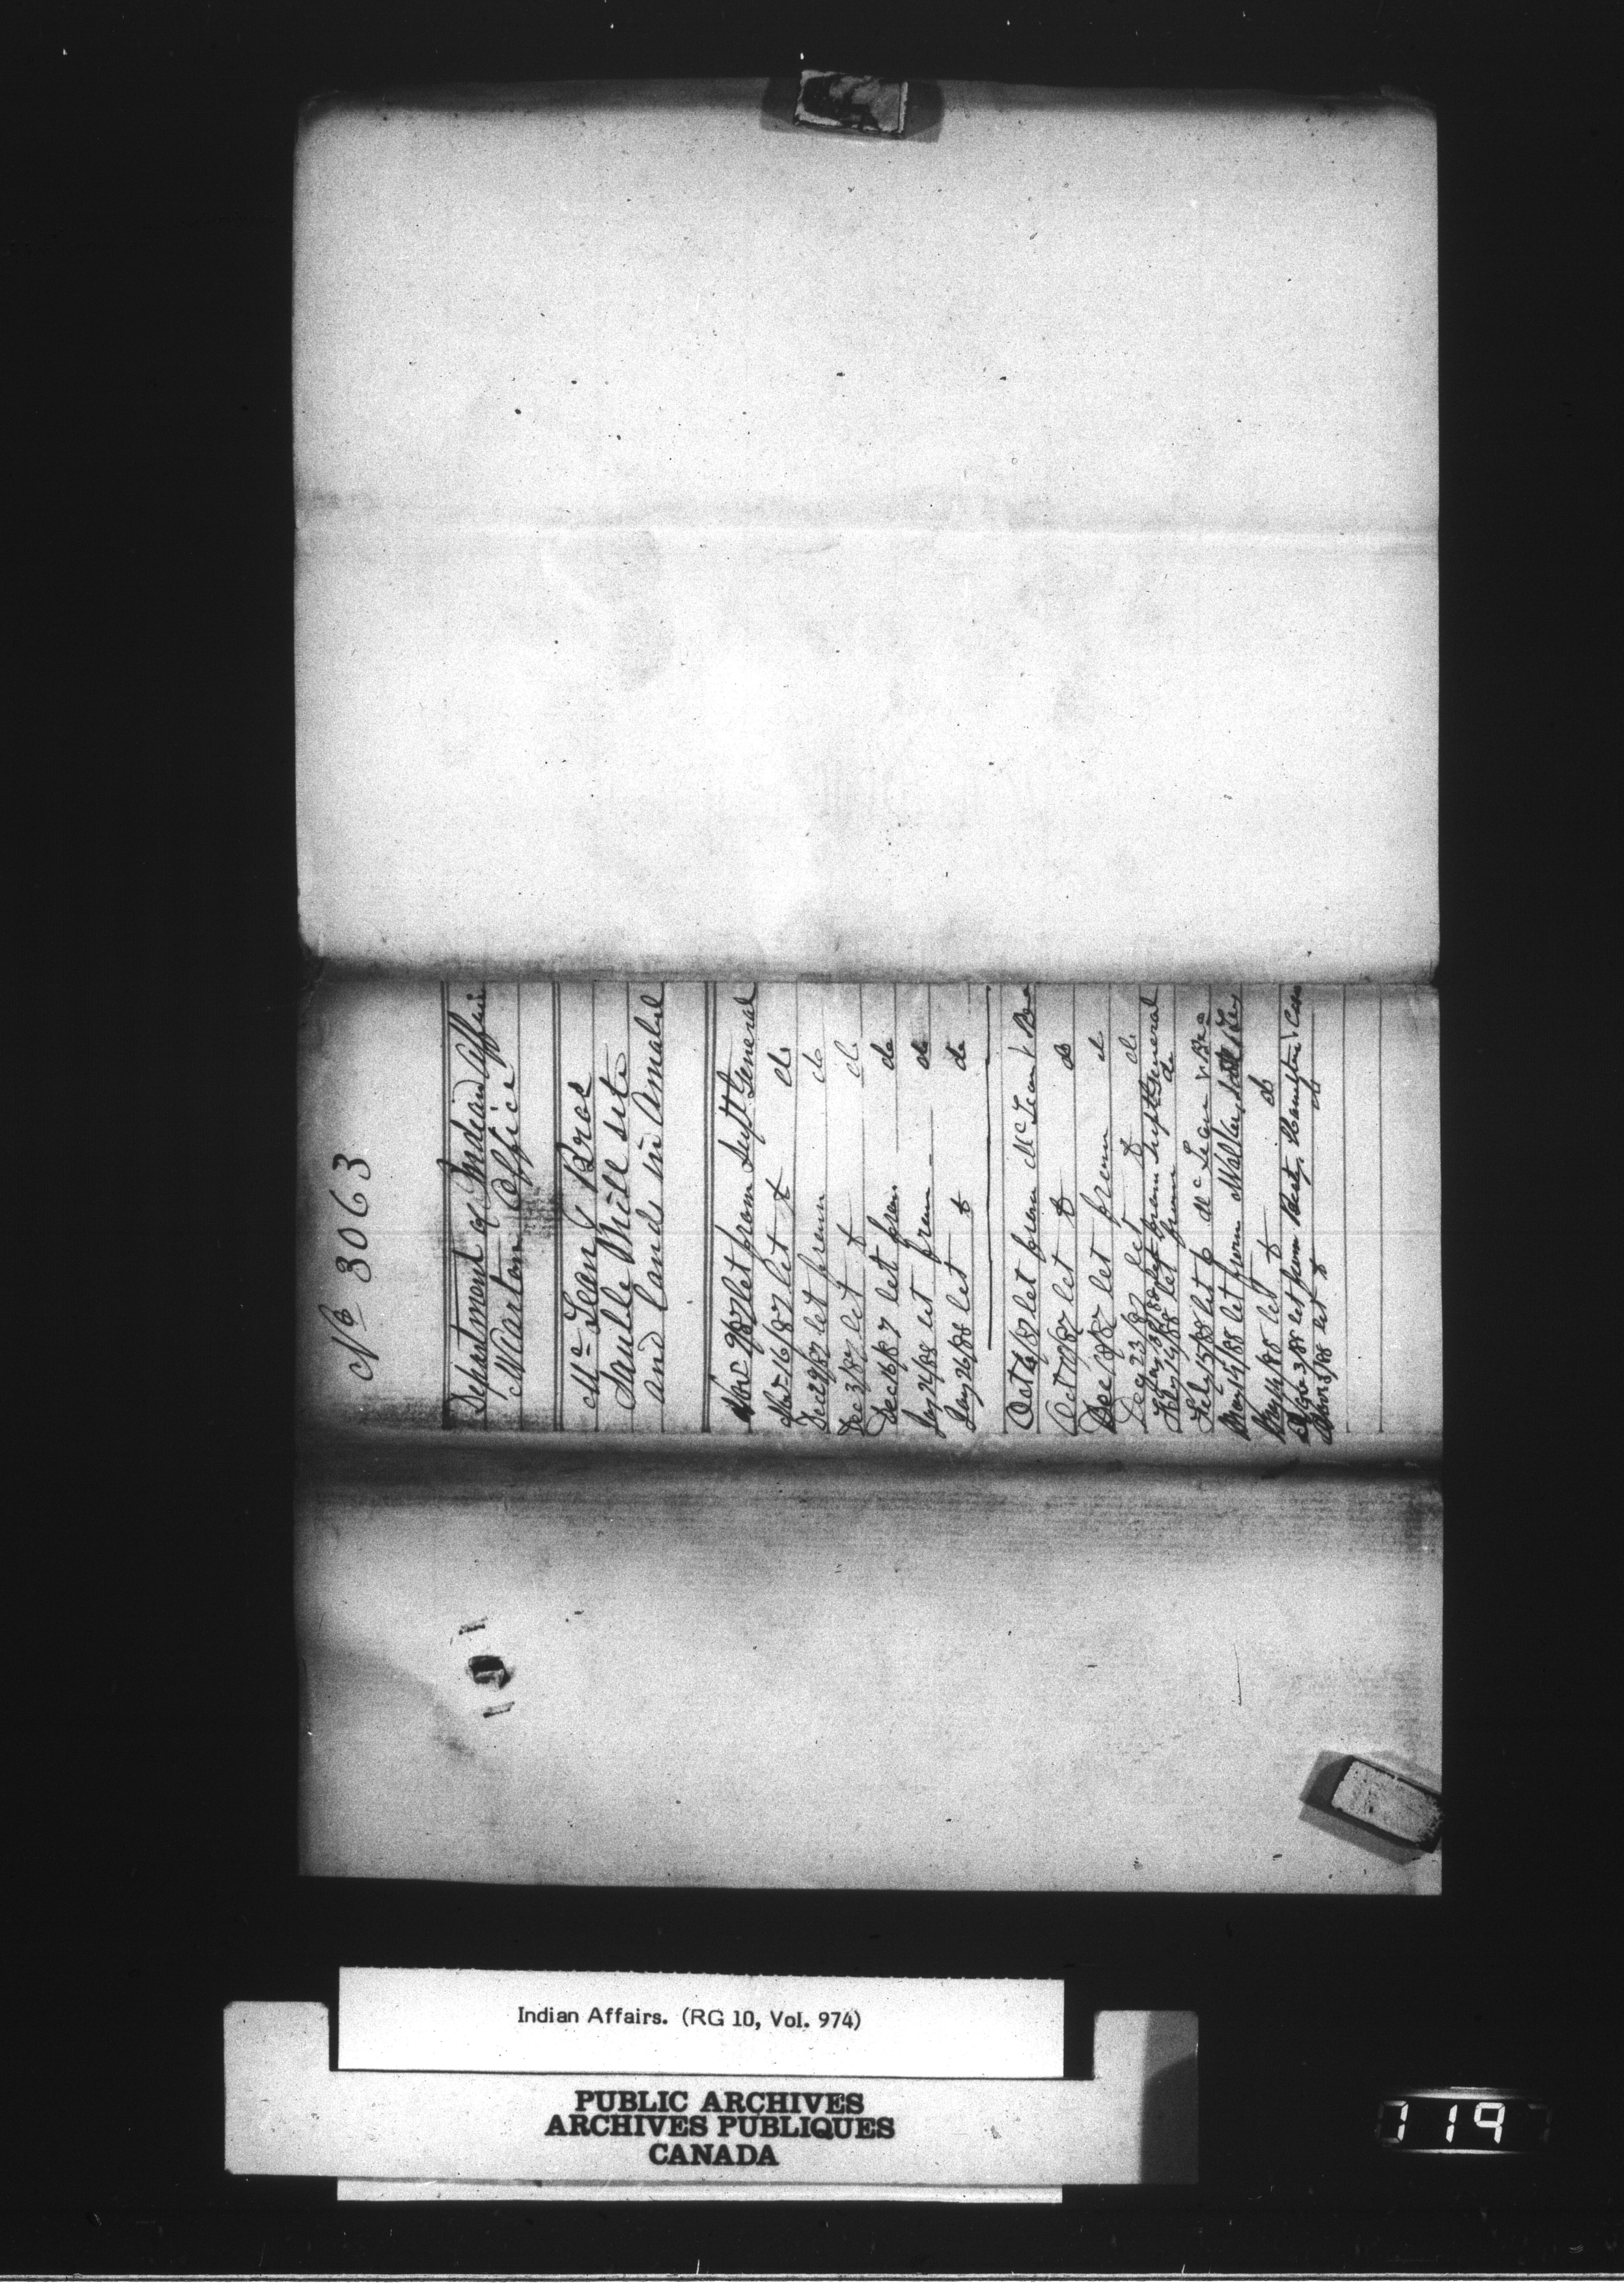 No 3063
Department of Indian Affairs
Wiarton Office
McLean & Bros
Sauble Mill site
and lands in Amabel
Nov 9/87 let from Supt General
Nov 16/87 let to do
Dec 2/87 let from do
Dec 3/87 let to do
Dec 16/87 let from do
Jany 24/88 let from do
Jany 26/88 let to do
Oct 6/87 let from McLean & Bro
Oct 7/87 let to do
Dec 13/87 let from do
Dec 23/87 let to do
let from Supt General
Feby 14/88 let from do
Feby 15/88 let to McLean & Bro
May 14/88 let from
May 14/88 let to do
3/88 let from
3/88 let to do
Indian Affairs. (RG 10, Vol. 974)
PUBLIC ARCHIVES
ARCHIVES PUBLIQUES
CANADA
119